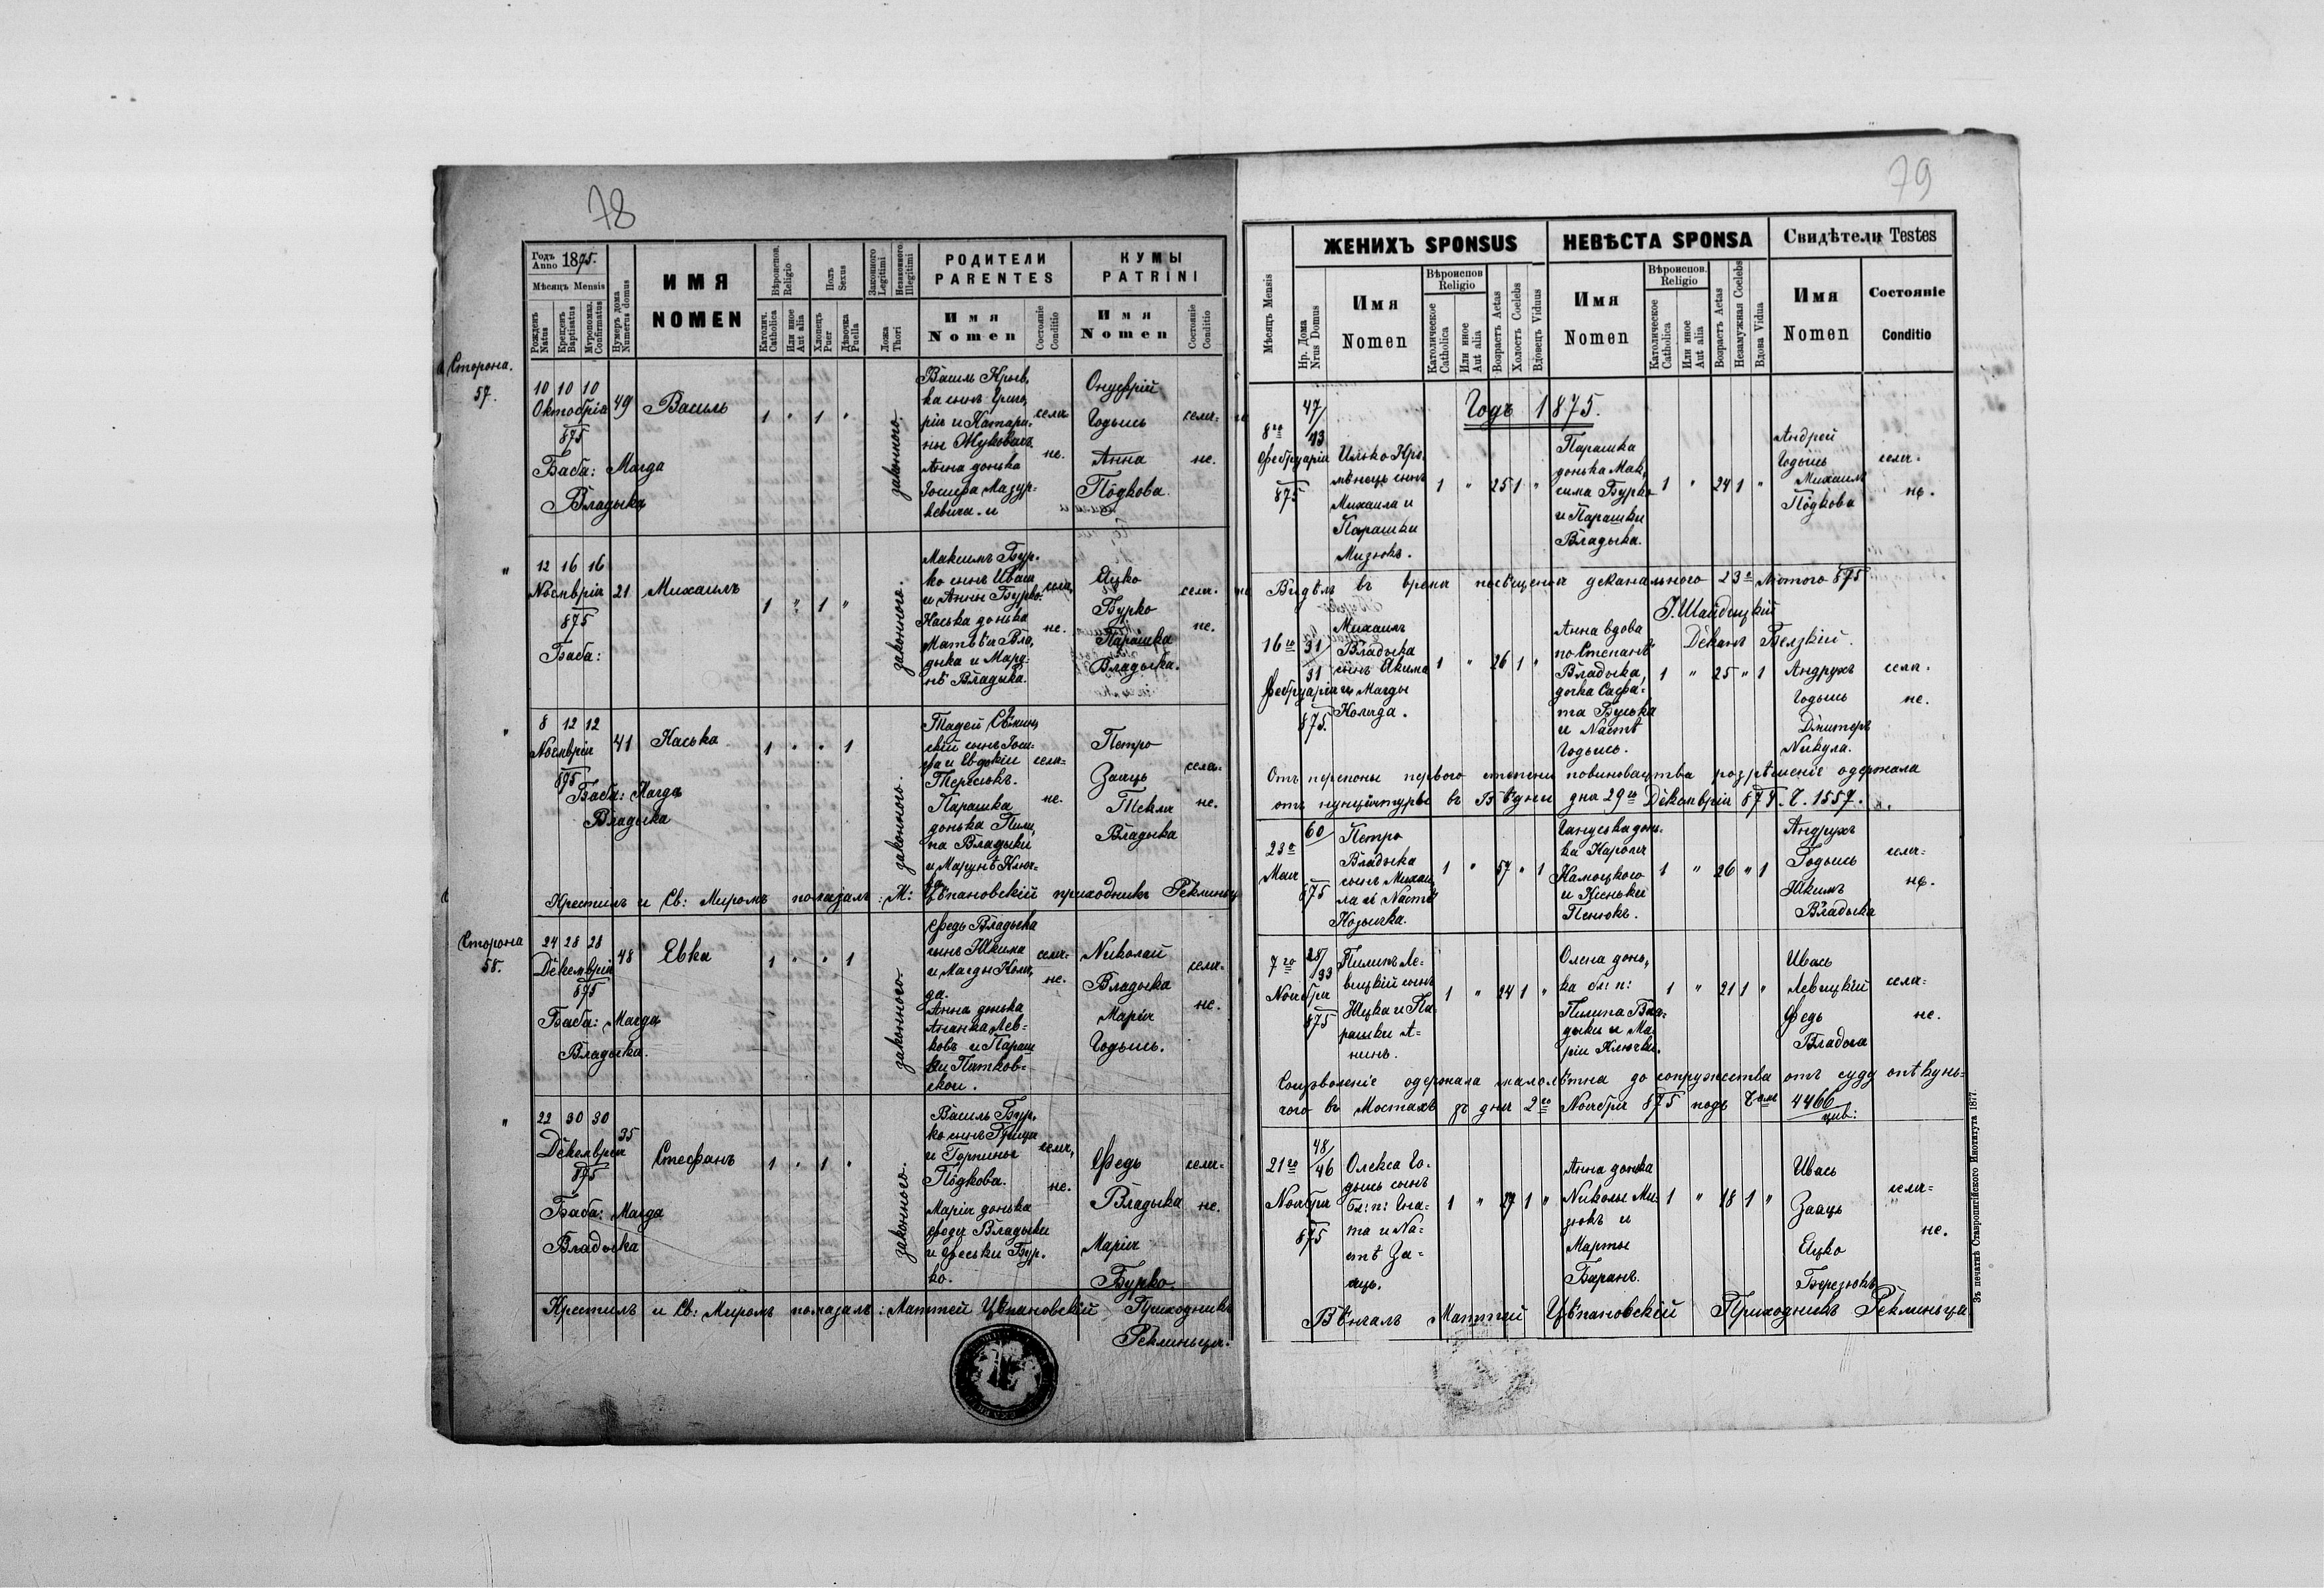 78
Годъ Anno 1875.
Мѣсяцъ Mensis
Рожденъ Natus
Крещенъ Baptisatus
Мѵропомаз. Confirmatus
Нумеръ дома Numerus domus
ИМЯ
NOMEN
Вѣроиспов. Religio
Католич. Catholica
Или иное Aut alia
Полъ Sexus
Хлопецъ Puer
Дѣвочка Puella
Законного Legitimi
Незаконного Illegitimi
Ложа Thori
РОДИТЕЛИ
PARENTES
Имя
Nomen
Состояніе Conditio
КУМЫ
PATRINI
Имя
Nomen
Состояніе Conditio
Сторона.
57.
10 10 10
Октобрія
875
49
Василь
1 " 1 "
законного.
Василь Крив,
ка сынъ Григо,
рія и Катари,
ны Жуковихъ
Анна донька
Іосифа Мазур-
кевича. и
селя
не.
Онуфрій
Годысь
Анна
Подкова.
селя-
не.
Баба: Магда
Владыка
"
12 16 16
Ноемврія
875
21
Михаилъ
1 " 1 "
законного.
Максимъ Бур-
ко сынъ Иваш
и Анны Бурко.
Наська донька
Матвѣя Вла,
дыка и Мару-
нѣ Владыка.
селя,
не.
Яцко
Бурко
Парашка
Владыка.
селя-
не.
Баба:
"
8 12 12
Ноемврія
875
41
Наська
1 " " 1
законного.
Тадей
скій сынъ Іоси-
фа и Евдокіи
Тересюкъ.
Парашка
донька Пили,
па Владыки
и Марунѣ Ключ-
ка.
селя-
не.
Петро
Заяць
Текля
Владыка
селя-
не.
Баба: Магда
Владыка
Крестилъ и Св: Миромъ помазалъ: М: Цѣпановскій приходникъ Реклинця
Сторона
58.
24 28 28
Декемврія
875
48
Евка
1 " " 1
законного.
Федь Владыка
сынъ Якима
и Магды Коля,
да.
Анна донька
Ананка Лев-
ковъ и Параш
ки Пятков-
ской.
селя-
не.
Николай
Владыка
Марія
Годысь.
селя-
не.
Баба: Магда
Владыка.
"
22 30 30
Декемврія
875
35
Стефанъ
1 " 1 "
законного.
Василь Бур-
ко сынъ Гриця
и Горпины
Подкова.
Марія донька
Федя Владыки
и Феськи Бур-
ко.
селя,
не.
Федь
Владыка
Марія
Бурко.
селя-
не.
Баба: Магда
Владыка
Крестилъ и Св: Миромъ помазалъ: Маттей Цѣпановскій Приходникъ
Реклиньця.
79
Мѣсяцъ Mensis
Нр. Дома Nrus Domus
ЖЕНИХЪ SPONSUS
Имя
Nomen
Вѣроиспов Religio
Католическое Catholica
Или иное Aut alia
Возрастъ Aetas
Холостъ Coelebs
Вдовецъ Viduus
НЕВѢСТА SPONSA
Имя
Nomen
Вѣроиспов. Religio
Католическое Catholica
Или иное Aut alia
Возрастъ Aetas
Незамужная Coelebs
Вдова Vidua
Свидѣтели Testes
Имя
Nomen
Состояніе
Conditio
Годъ 1875.
8го
Фебруарія
875
47/13
Илько Кре,
мѣнець сынъ
Михаила и
Парашки
Мизюкъ.
1 " 25 1 "
Парашка
донька Мак,
сима Бурко
и Парашки
Владыка.
1 " 24 1 "
Андрей
Годысь
Михаилъ
Подкова
селя-
не.
Видѣлъ въ время посѣщенія деканального 23го Лютого 875
І. Шайдицкій
Деканъ Белзкій.
16го
Фебруарія
875.
31/31
Михаилъ
Владыка
сынъ Якима
и Магды
Коляда.
1 " 26 1 "
Анна вдова
по Степанѣ
Владыка,
дочка Сафа-
та Буська
и Настѣ
Годысь.
1 " 25 " 1
Андрухъ
Годысь
Дмитеръ
Никула.
селя-
не.
Отъ перепоны первого степени повиноватства розрѣшеніе одержала
отъ нунціятуры въ Вѣдни дня 29го Декемврія 874. Ч. 1557.
23го
Мая
875
60
Петро
Владыка
сынъ Михаи,
ла и Настѣ
Козычка.
1 " 57 " 1
Гануська донь-
ка Кароля
Камоцкого
и Ксеньки
Пенюкъ.
1 " 26 " 1
Андрухъ
Годысь
Якимъ
Владыка
селя-
не.
7го
Ноября
875
28/33
Пилипъ Ле-
вицкій сынъ
Яцка и Па
рашки А-
нинъ.
1 " 24 1 "
Олена донь,
ка бл: п:
Пилипа Вла-
дыки и Ма-
ріи Ключки.
1 " 21 1 "
Ивась
Левицкій
Федь
Владыка
селя-
не.
Соизволеніе одержала малолѣтна до сопружества отъ суду опѣкунь-
чого въ Мостахъ зъ дня 2го Ноября 875 подъ Ч. 4466
цив:
21го
Ноября
875
48/46
Олекса Го-
дысь сынъ
бл: п: Гна-
та и На-
стѣ За-
яць.
1 " 27 1 "
Анна донька
Николы Ми-
зюкъ и
Марты
Баранъ.
1 " 18 1 "
Ивась
Заяць
Яцко
Березюкъ
селя-
не.
Вѣнчалъ Маттей Цѣпановскій Приходникъ Реклиньця
Зъ печатнѣ Ставропигійского Института 1877.